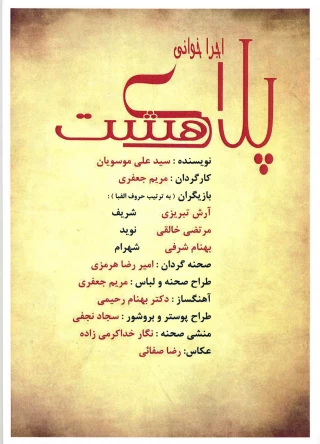 اجرا خوانی
پلاک هشت
نویسنده : سید علی موسویان
کارگردان : مریم جعفری
بازیگران ( به ترتیب حروف الفبا ) :
آرش تبریزی شریف
مرتضی خالقی نوید
بهنام شرفی شهرام
صحنه گردان : امیر رضا هرمزی
طراح صحنه و لباس : مریم جعفری
آهنگساز : دکتر بهنام رحیمی
طراح پوستر و بروشور : سجاد نجفی
منشی صحنه : نگار خداکرمی زاده
عکاس: رضا صفائی